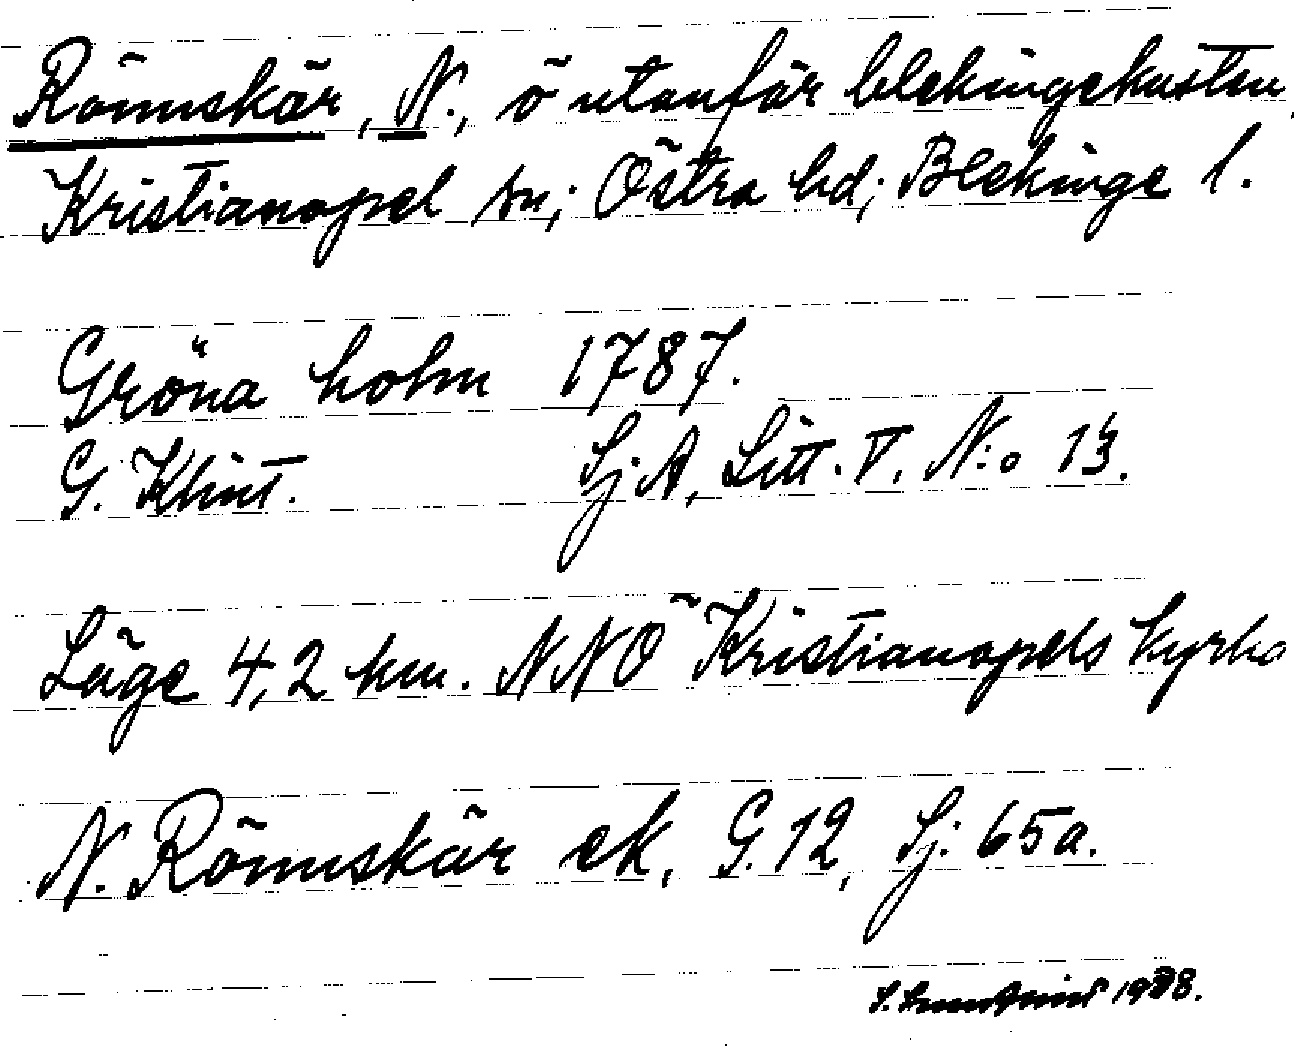 Römskär, N., ö utanför blekingekusten,
Kristianopel sn; Östra hd; Blekinge l.
Gröna holm 1787.
G. Klint. Sj A, Litt. V. N:o 13.
Läge 4,2 km. NNÖ Kristianopels kyrka
N. Römskär ek, G. 12, Sj: 65a.